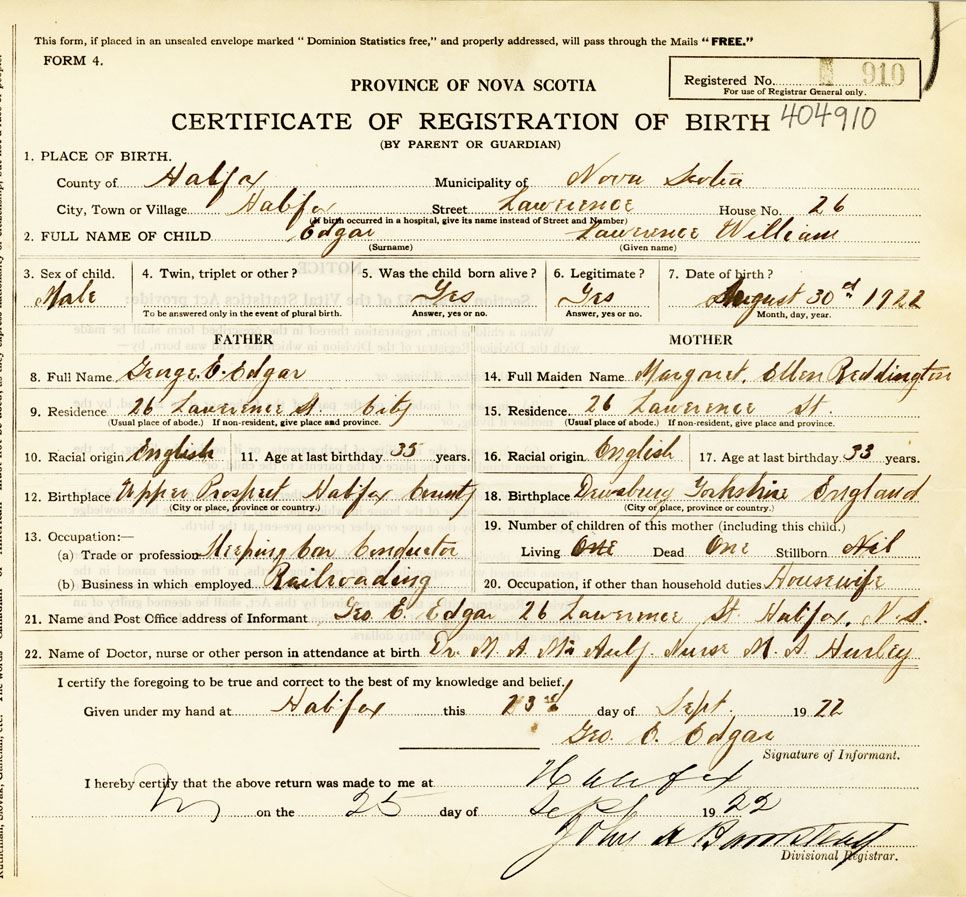 This form, if placed in an unsealed envelope marked " Dominion Statistics free," and properly addressed, will pass through the Mails " FREE."
FORM 4.
Registered No. 910
For use of Registrar General only.
PROVINCE OF NOVA SCOTIA
CERTIFICATE OF REGISTRATION OF BIRTH 404910
(BY PARENT OR GUARDIAN)
1. PLACE OF BIRTH.
County of Halifax Municipality of Nova Scotia
City, Town or Village Halifax Street Lawerence House No. 26
(If birth occurred in a hospital, give its name instead of Street and Number)
2. FULL NAME OF CHILD Edgar Lawerence William
(Surname) (Given name)
3. Sex of child. 4. Twin, triplet or other ? 5. Was the child born alive ? 6. Legitimate ? 7. Date of birth ?
Male Yes Yes August 30 1922
To be answered only in the event of plural birth. Answer, yes or no. Answer, yes or no. Month, day, year.
FATHER MOTHER
8. Full Name George E. Edgar 14. Full Maiden Name Margaret. Ellen Reddington
9. Residence 26 Lawerence St. City 15. Residence. 26 Lawerence St.
(Usual place of abode.) If non-resident, give place and province. (Usual place of abode.) If non-resident, give place and province.
10. Racial origin English 11. Age at last birthday 35 years. 16. Racial origin English 17. Age at last birthday 33 years.
12. Birthplace Upper Prospect Halifax County 18. Birthplace Dewsbury Yorkshire England
(City or place, province or country.) (City or place, province or country.)
13. Occupation:— 19. Number of children of this mother (including this child.)
(a) Trade or profession Sleeping Car Conductor Living One Dead One Stillborn Nil
(b) Business in which employed Railroading 20. Occupation, if other than household duties Housewife
21. Name and Post Office address of Informant Geo E. Edgar 26 Lawerence St Halifax, N.S.
22. Name of Doctor, nurse or other person in attendance at birth Dr. M. A. Nurse M. A. Hurley
I certify the foregoing to be true and correct to the best of my knowledge and belief.
Given under my hand at Halifax this 23rd day of Sept. 1922
Geo. E. Edgar
Signature of Informant.
I hereby certify that the above return was made to me at Halifax
on the 25 day of Sept 1922
John
Divisional Registrar.